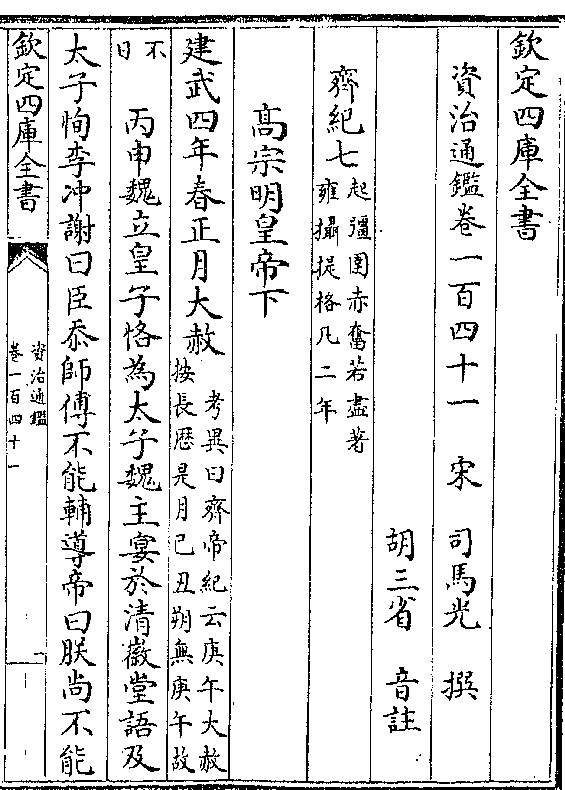 欽定四庫全書
資治通鑑卷一百四十一　宋　司馬光　撰
胡三省　音註
齊紀七
起彊圉赤奮若盡著
雍攝提格凡二年
髙宗明皇帝下
建武四年春正月大赦
考異曰齊帝紀云庚午大赦
按長歴是月己丑朔無庚午故
不
日
丙申魏立皇子恪為太子魏主宴於清徽堂語及
太子恂李冲謝曰臣忝師傅不能輔導帝曰朕尚不能
欽定四庫全書
資治通鑑
卷一百四十一
一